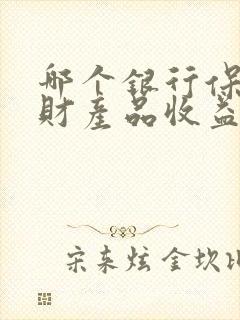 哪个银行保
财产品收益
宋来炫金坎比